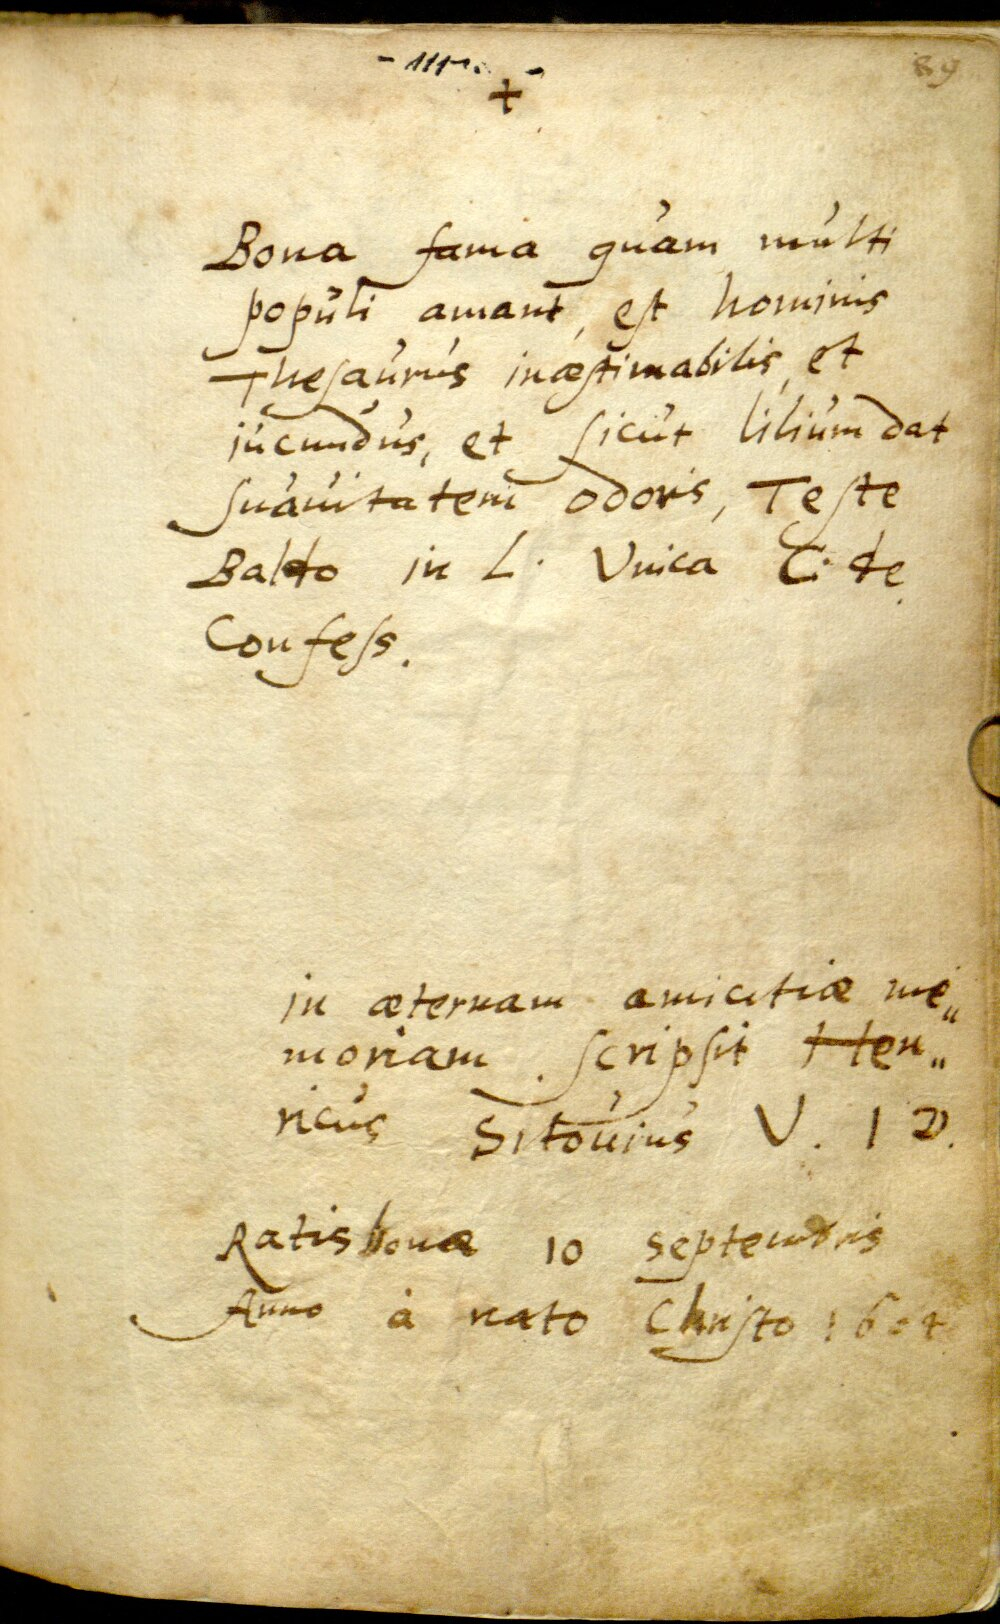 - 111. -
89
+
Bona fama quam multi
populi amant, est hominis
Thesaurus inæstimabilis, et
iucundus, et sicut lilium dat
suauitatem odoris, Teste
Baldo in L. Vnica C. de
Confess.
in æternam amicitiæ me„
moriam scripsit Hen„
ricus Sitouius V. I D.
Ratisbonæ 10 septembris
Anno à nato Christo 1604